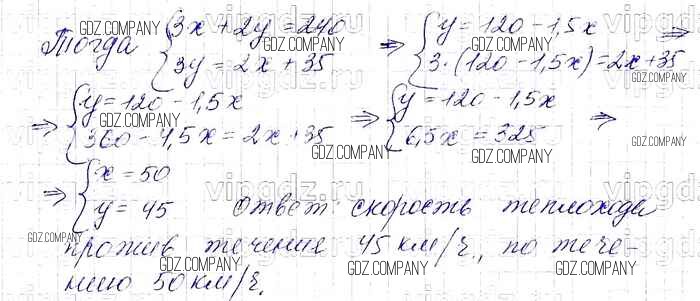 Тогда {3x + 2y = 240 ⇒ {y = 120 - 1,5x ⇒
{3y = 2x + 35 {3·(120 - 1,5x) = 2x + 35
⇒ {y = 120 - 1,5x ⇒ {y = 120 - 1,5x ⇒
{360 - 4,5x = 2x + 35 {6,5x = 325
⇒ {x = 50
{y = 45 Ответ: скорость теплохода
против течения 45 км/ч, по тече-
нию 50 км/ч.
GDZ.COMPANY
vipgdz.ru